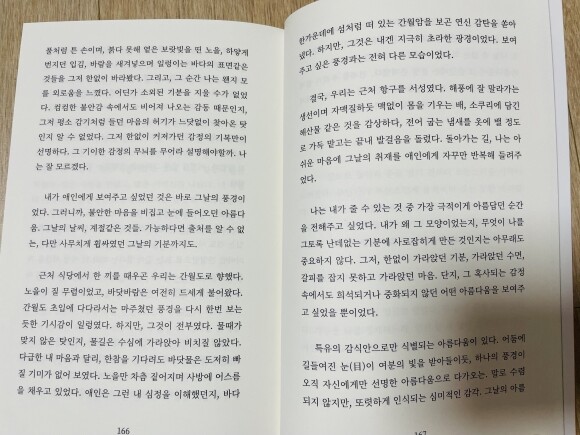 풀처럼 튼 손이며, 붉다 못해 옅은 보랏빛을 띤 노을, 하얗게
번지던 입김, 바람을 새겨넣으며 일렁이는 바다의 표면같은
것들을 그저 한없이 바라봤다. 그리고, 그 순간 나는 왠지 모
를 외로움을 느꼈다. 어딘가 소외된 기분을 지울 수가 없었
다. 컴컴한 불안감 속에서도 비어져 나오는 감동 때문인지,
그저 평소 감기처럼 드물던 마음의 허기가 느닷없이 찾아온 탓
인지 알 수 없었다. 그저 한없이 커져가던 감정의 기록만이
선명하다. 그 기이한 감정의 무늬를 무어라 설명해야할까. 나
는 잘 모르겠다.
내가 애인에게 보여주고 싶었던 것은 바로 그날의 풍경이
었다. 그러니까, 불안한 마음을 비집고 눈에 들어오던 아름다
움. 그날의 날씨, 계절같은 것들. 가능하다면 출처를 알 수 없
는, 다만 사무치게 휩싸였던 그날의 기분까지도.
근처 식당에서 한 끼를 때우곤 우리는 간월도로 향했다.
노을이 질 무렵이었고, 바닷바람은 여전히 드세게 불어왔다.
간월도 초입에 다다라서는 마주쳤던 풍경을 다시 한번 보는
듯한 기시감이 일렁였다. 하지만, 그것이 전부였다. 물때가
맞지 않은 탓인지, 물길은 수심에 가라앉아 비치질 않았다.
다급한 내 마음과 달리, 한참을 기다려도 바닷물은 도저히 빠
질 기미가 없어 보였다. 노을만 차츰 짙어지며 사방에 어스름
을 채우고 있었다. 애인은 그런 내 심정을 이해했던지, 바다
166
한가운데에 섬처럼 떠 있는 간월암을 보곤 연신 감탄을 쏟아
냈다. 하지만, 그것은 내겐 지극히 초라한 광경이었다. 보여
주고 싶은 풍경과는 전혀 다른 모습이었다.
결국, 우리는 근처 항구를 서성였다. 해풍에 잘 말라가는
생선이며 자맥질하듯 맥없이 몸을 기우는 배, 소쿠리에 담긴
해산물 같은 것을 감상하다, 전어 굽는 냄새를 못에 밸 정도
로 가득 맡고는 끝내 발걸음을 돌렸다. 돌아가는 길, 나는 아
쉬운 마음에 그날의 취재를 애인에게 자꾸만 반복해 들려주
었다.
나는 내가 줄 수 있는 것 중 가장 극적이게 아름답던 순간
을 전해주고 싶었다. 내가 왜 그 모양이었는지, 무엇이 나를
그토록 난데없는 기분에 사로잡히게 만든 것인지는 아무래도
중요하지 않다. 그저, 한없이 가라앉던 기분, 가라앉던 수면,
갈피를 잡지 못하고 가라앉던 마음. 단지, 그 혹사되는 감정
속에서도 희석되거나 중화되지 않던 어떤 아름다움을 보여주
고 싶었을 뿐이었다.
특유의 감식안으로만 식별되는 아름다움이 있다. 어둠에
길들여진 눈(目)이 여분의 빛을 받아들이듯, 하나의 풍경이
오직 자신에게만 선명한 아름다움으로 다가오는. 말로 수렴
되지 않지만, 또렷하게 인식되는 심미적인 감각. 그날의 아름
167